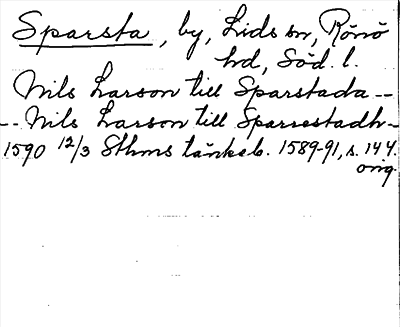 Sparsta, by, Lids sn, Rönö
hd, Söd. l.
Nils Larson till Sparstada --
-- Nils Larson till Sparrestadh --
1590 12/3 Sthms tänkeb. 1589-91, s. 144.
orig.